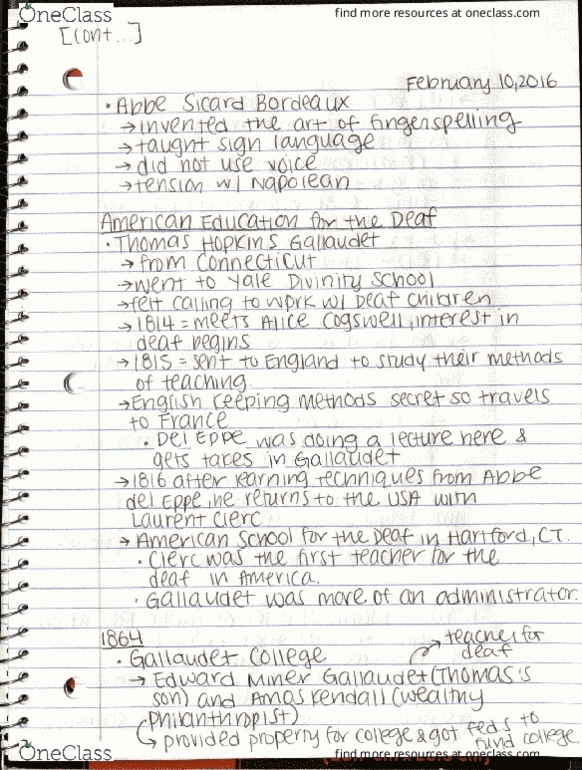 OneClass
find more resources at oneclass.com
[Cont...]
February 10, 2016
• Abbe Sicard Bordeaux
→ invented the art of fingerspelling
→ taught sign language
→ did not use voice
→ tension w/ Napolean
American Education for the Deaf
• Thomas Hopkins Gallaudet
→ from Connecticut
→ went to Yale Divinity School
→ felt calling to work w/ Deaf children
→ 1814 = meets Alice Cogswell, interest in
deaf begins
→ 1815 = sent to England to study their methods
of teaching
→ English keeping methods secret so travels
to France
• Del Eppe was doing a lecture here &
gets takes in Gallaudet
→ 1816 after learning techniques from Abbe
del Eppe, he returns to the USA with
Laurent Clerc
→ American School for the Deaf in Hartford, CT.
• Clerc was the first teacher for the
deaf in America.
• Gallaudet was more of an administrator.
1864
→ teacher for
deaf
• Gallaudet College
→ Edward Miner Gallaudet (Thomas's
son) and Amos Kendall (wealthy
philanthropist)
↳ provided property for college & got feds to
fund college
OneClass
find more resources at oneclass.com